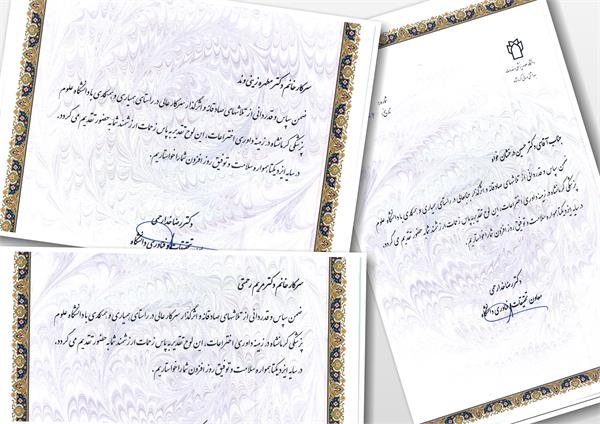 سرکار خانم دکتر مطهره زینی وند
ضمن سپاس و قدردانی از تلاشهای صادقانه و اثرگذار سرکار عالی در راستای همیاری و همکاری با دانشگاه علوم
پزشکی کرمانشاه در زمینه داوری اختراعات، این لوح تقدیر به پاس زحمات ارزشمند شما به حضور تقدیم می گردد.
در سایه ایزد یکتا همواره سلامت و توفیق روز افزون شما را خواستاریم.
دکتر رضا خدارحمی
تحقیقات و فناوری دانشگاه
جناب آقای دکتر حسین
ضمن سپاس و قدردانی از تلاشهای صادقانه و اثرگذار جنابعالی در راستای همیاری و همکاری با دانشگاه علوم
پزشکی کرمانشاه در زمینه داوری اختراعات، این لوح تقدیر به پاس زحمات ارزشمند شما به حضور تقدیم می گردد.
در سایه ایزد یکتا همواره سلامت و توفیق روز افزون شما را خواستاریم.
دکتر رضا خدارحمی
معاون تحقیقات و فناوری دانشگاه
سرکار خانم دکتر مریم رحمتی
ضمن سپاس و قدردانی از تلاشهای صادقانه و اثرگذار سرکار عالی در راستای همیاری و همکاری با دانشگاه علوم
پزشکی کرمانشاه در زمینه داوری اختراعات، این لوح تقدیر به پاس زحمات ارزشمند شما به حضور تقدیم می گردد.
در سایه ایزد یکتا همواره سلامت و توفیق روز افزون شما را خواستاریم.